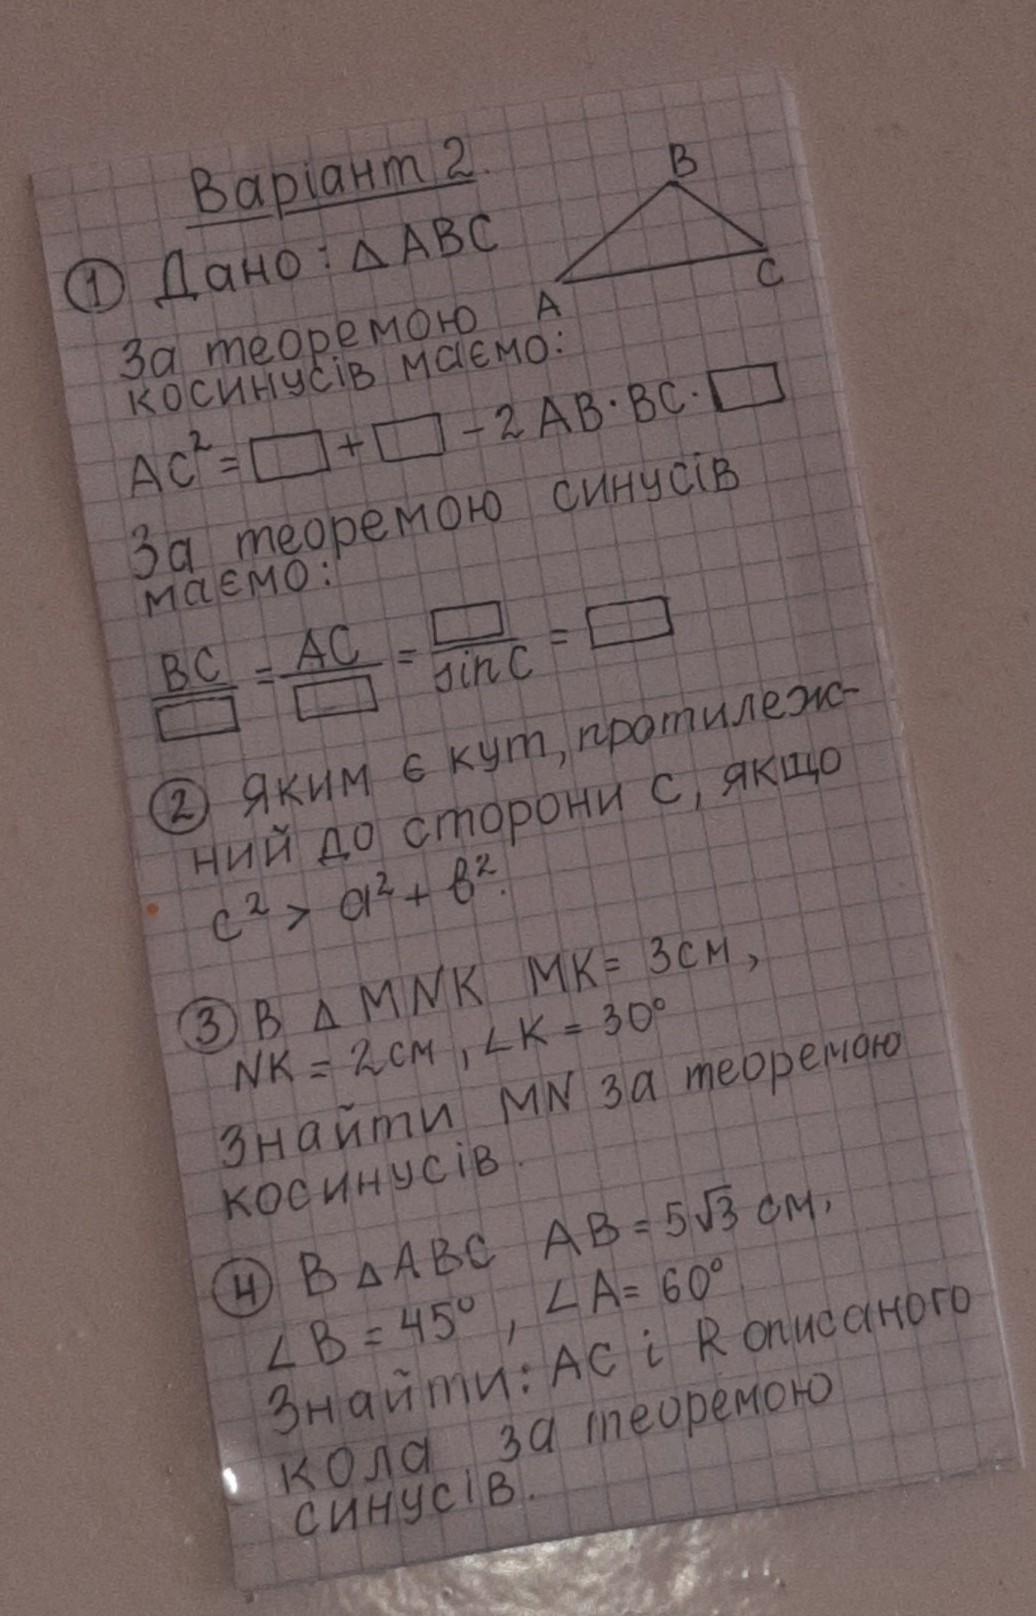 Варіант 2.
B
① Дано: △ABC
A
C
За теоремою
косинусів маємо:
AC² = □ + □ - 2AB·BC·□
За теоремою синусів
маємо:
BC/□ = AC/□ = □/sinC = □
② Яким є кут, протилеж-
ний до сторони C, якщо
c² > a² + b².
③ В △MNK MK = 3см,
NK = 2см, ∠K = 30°
Знайти MN за теоремою
косинусів.
④ В △ABC AB = 5√3 см,
∠B = 45°, ∠A = 60°
Знайти: AC і R описаного
кола за теоремою
синусів.